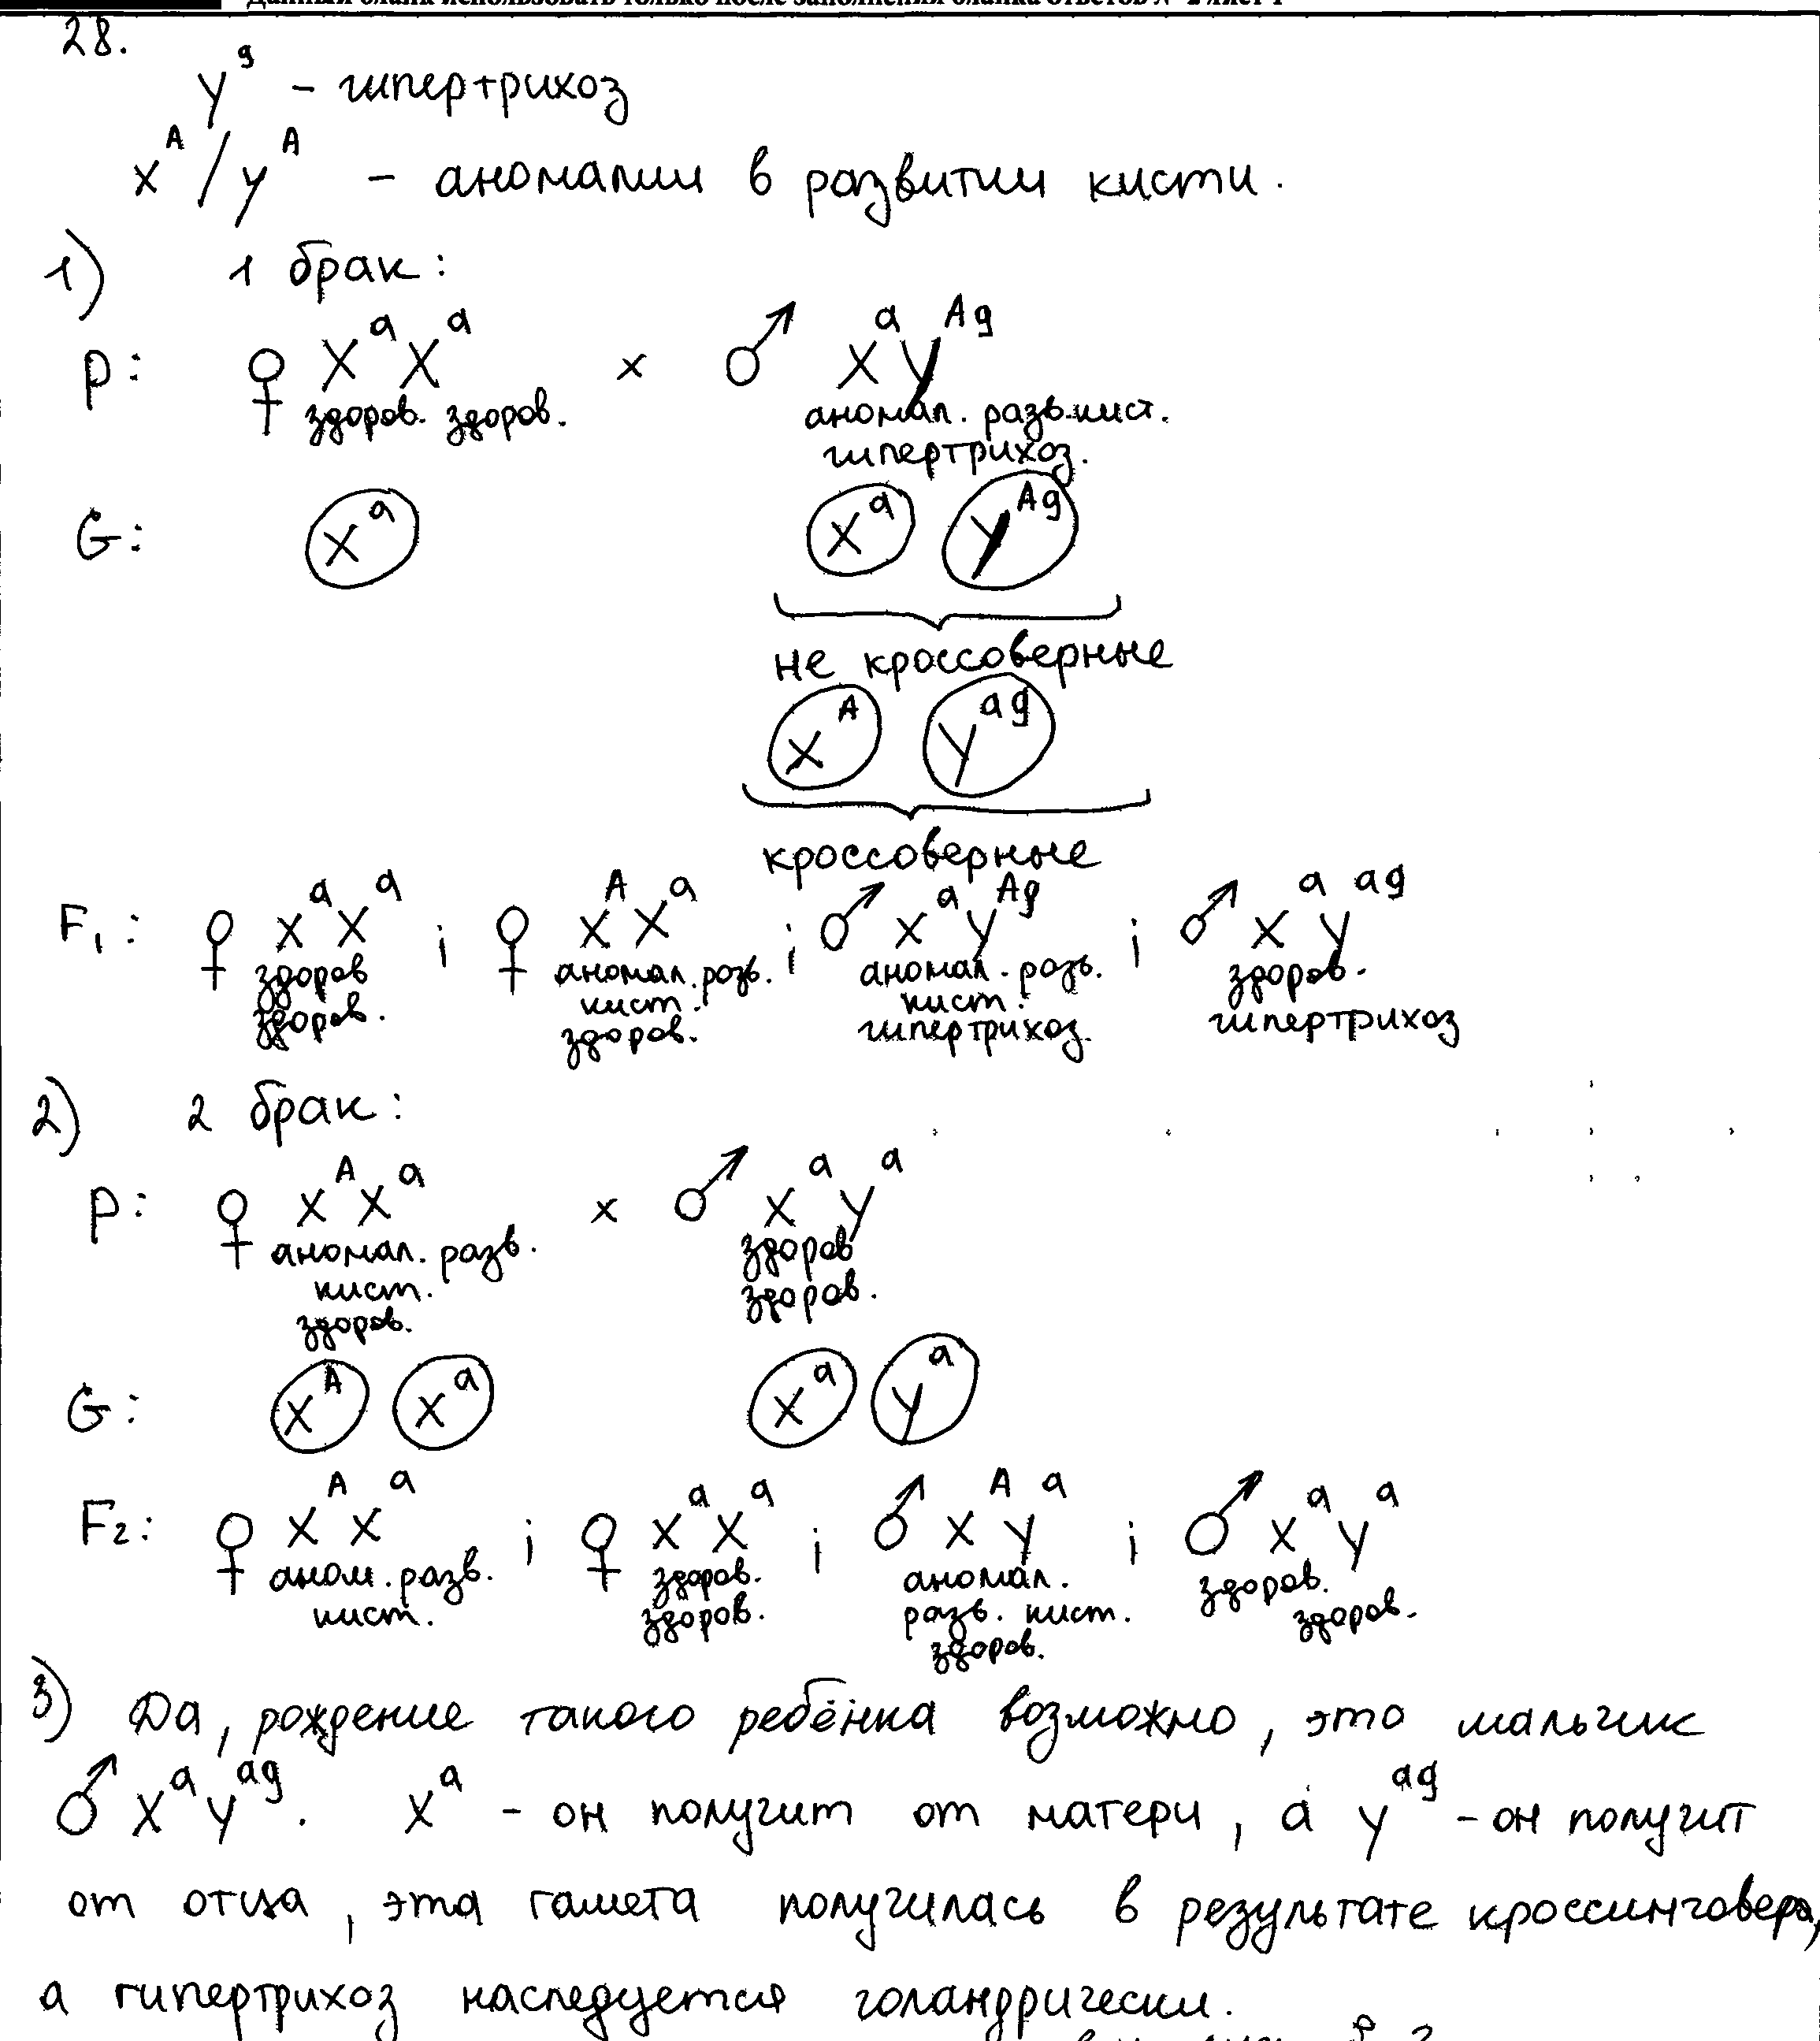 Данный бланк использовать только после заполнения бланка ответов № 2 лист 1
28.
y^g - гипертрихоз
x^A / y^A - аномалии в развитии кисти.
1) 1 брак:
P: ♀ X^a X^a x ♂ X^a Y^Ag
здоров. здоров. аномал. разв. кист.
гипертрихоз.
G: X^a X^a Y^Ag
не кроссоверные
X^A Y^ag
кроссоверные
F1: ♀ X^a X^a ; ♀ X^A X^a ; ♂ X^a Y^Ag ; ♂ X^a Y^ag
здоров аномал. разв. аномал. разв. здоров.
здоров. кист. кист. гипертрихоз
здоров. гипертрихоз.
2) 2 брак:
P: ♀ X^A X^a x ♂ X^a Y^a
аномал. разв. здоров
кист. здоров.
здоров.
G: X^A X^a X^a Y^a
F2: ♀ X^A X^a ; ♀ X^a X^a ; ♂ X^A Y^a ; ♂ X^a Y^a
аном. разв. здоров. аномал. здоров.
кист. здоров. разв. кист. здоров.
здоров.
3) Да, рождение такого ребёнка возможно, это мальчик
♂ X^a Y^ag. X^a - он получит от матери, а Y^ag - он получит
от отца, эта гамета получилась в результате кроссинговера,
а гипертрихоз наследуется голандрически.